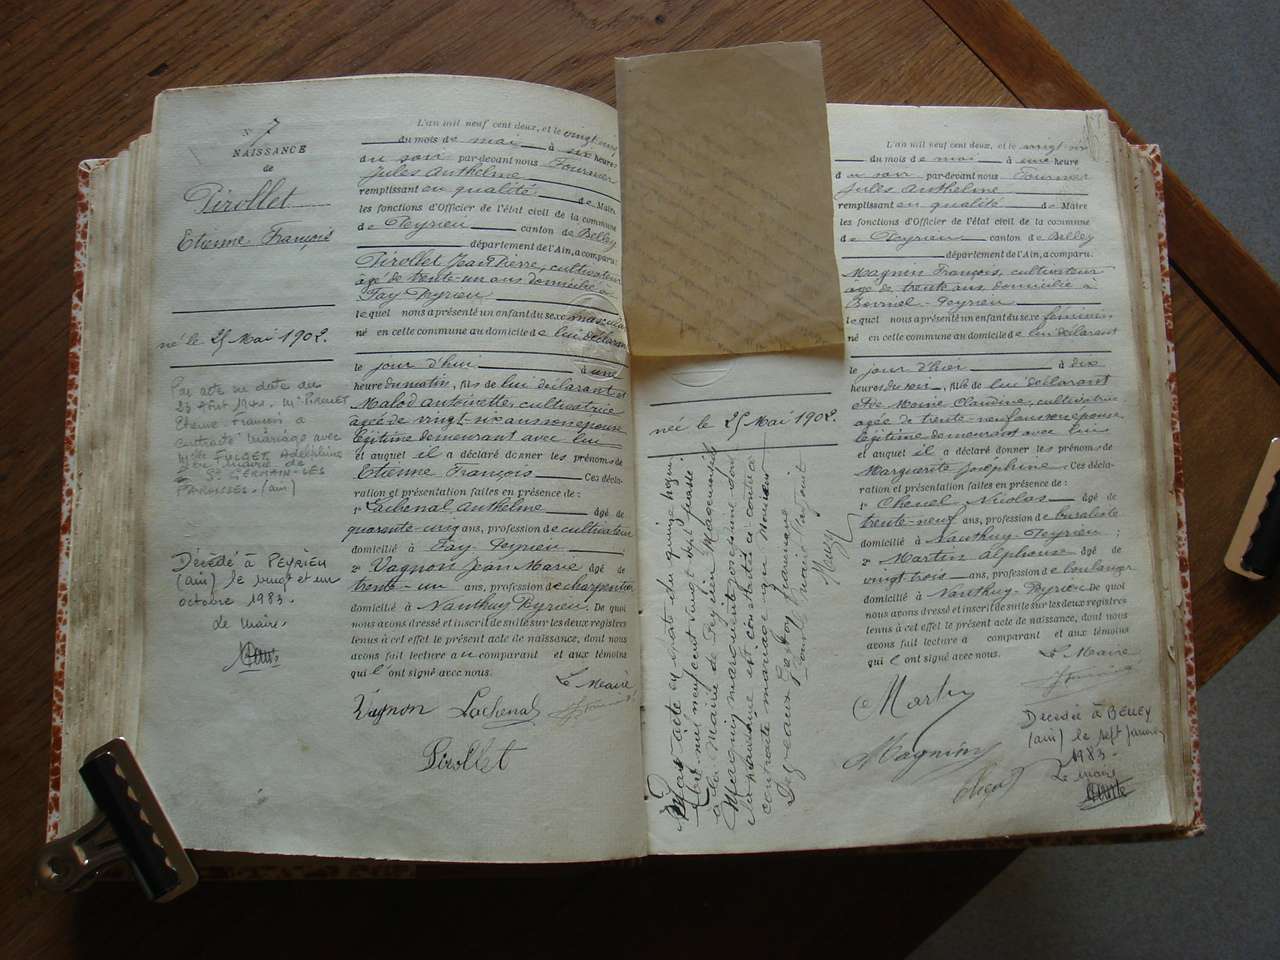 N° 7
NAISSANCE
de
Pirollet
Etienne François
né le 25 Mai 1902.
Par acte en date du
23 Avril 19 Mr PIROLLET
Etienne François a
contracté mariage avec
Mlle Adelphine
en mairie de
St GERMAIN-LES
PAROISSES. (ain)
Décédé à PEYRIEU
(ain) le vingt et un
octobre 1983.
Le Maire.
L'an mil neuf cent deux, et le vingt cinq
du mois de mai à six heures
du soir par-devant nous Fournier
Jules Anthelme
remplissant en qualité de Maire
les fonctions d'Officier de l'état civil de la commune
de Peyrieu canton de Belley
département de l'Ain, a comparu:
Pirollet Jean Pierre, cultivateur
âgé de trente-un ans domicilié à
Fay-Peyrieu
lequel nous a présenté un enfant du sexe masculin
né en cette commune au domicile de lui déclarant
le jour d'hui à une
heure du matin, fils de lui déclarant et
Malod Antoinette, cultivatrice
âgée de vingt-six ans son épouse
légitime demeurant avec lui
et auquel il a déclaré donner les prénoms de
Etienne François Ces décla-
ration et présentation faites en présence de :
1° Lachenal Anthelme âgé de
quarante-cinq ans, profession de cultivateur
domicilié à Fay-Peyrieu ;
2° Vagnon Jean Marie âgé de
trente-un ans, profession de charpentier
domicilié à Nanthuy-Peyrieu. De quoi
nous avons dressé et inscrit de suite sur les deux registres
tenus à cet effet le présent acte de naissance, dont nous
avons fait lecture au comparant et aux témoins
qui l'ont signé avec nous.
Le Maire
Vagnon Lachenal
Pirollet
née le 25 Mai 1902.
Par acte en date du quinze
mil neuf cent vingt sept passé
à la Mairie de Peyrieu Magnin
Magnin Marguerite Joséphine dont
la naissance est constatée ci-contre a
contracté mariage avec Monsieur
L'an mil neuf cent deux, et le vingt six
du mois de mai à une heure
du soir par-devant nous Fournier
Jules Anthelme
remplissant en qualité de Maire
les fonctions d'Officier de l'état civil de la commune
de Peyrieu canton de Belley
département de l'Ain, a comparu:
Magnin François, cultivateur
âgé de trente ans domicilié à
-Peyrieu
lequel nous a présenté un enfant du sexe féminin
né en cette commune au domicile de lui déclarant
le jour d'hier à dix
heures du soir, fille de lui déclarant
et de Moine Claudine, cultivatrice
âgée de trente-neuf ans son épouse
légitime demeurant avec lui
et auquel il a déclaré donner les prénoms de
Marguerite Joséphine Ces décla-
ration et présentation faites en présence de :
1° Chenel Nicolas âgé de
trente-neuf ans, profession de buraliste
domicilié à Nanthuy-Peyrieu ;
2° Martin Alphonse âgé de
vingt trois ans, profession de boulanger
domicilié à Nanthuy-Peyrieu. De quoi
nous avons dressé et inscrit de suite sur les deux registres
tenus à cet effet le présent acte de naissance, dont nous
avons fait lecture au comparant et aux témoins
qui l'ont signé avec nous.
Le Maire
Martin
Magnin
Décédée à BELLEY
(ain) le sept janvier
1983.
Le Maire